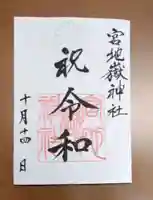 宮地嶽神社
祝令和
十月十四日